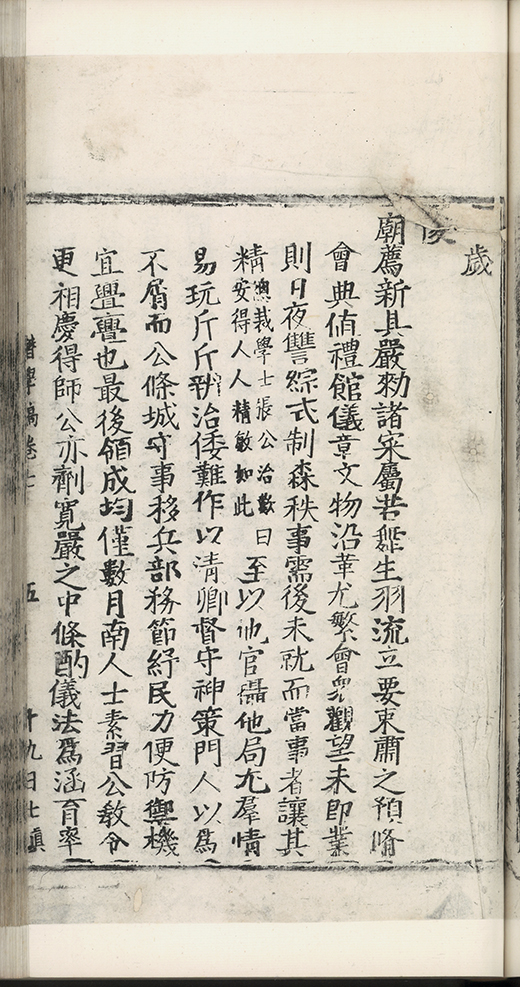 歲
廟薦新具嚴勑諸宋屬若羣生羽流立要束肅之預脩
會典值禮館儀章文物沿革尤繁會眾觀望未即業
則日夜讐綜式制森秩事需後未就而當事者讓其
精總裁學士張公治歎曰安得人人精敏如此至以他官攝他局尤羣情
易玩斤斤辦治倭難作以清卿督守神策門人以爲
不屑而公條城守事移兵部務節紓民力便防禦機
宜亹亹也最後領成均僅數月南人士素習公教令
更相慶得師公亦劑寬嚴之中條酌儀法爲涵育率
學稿卷七 五